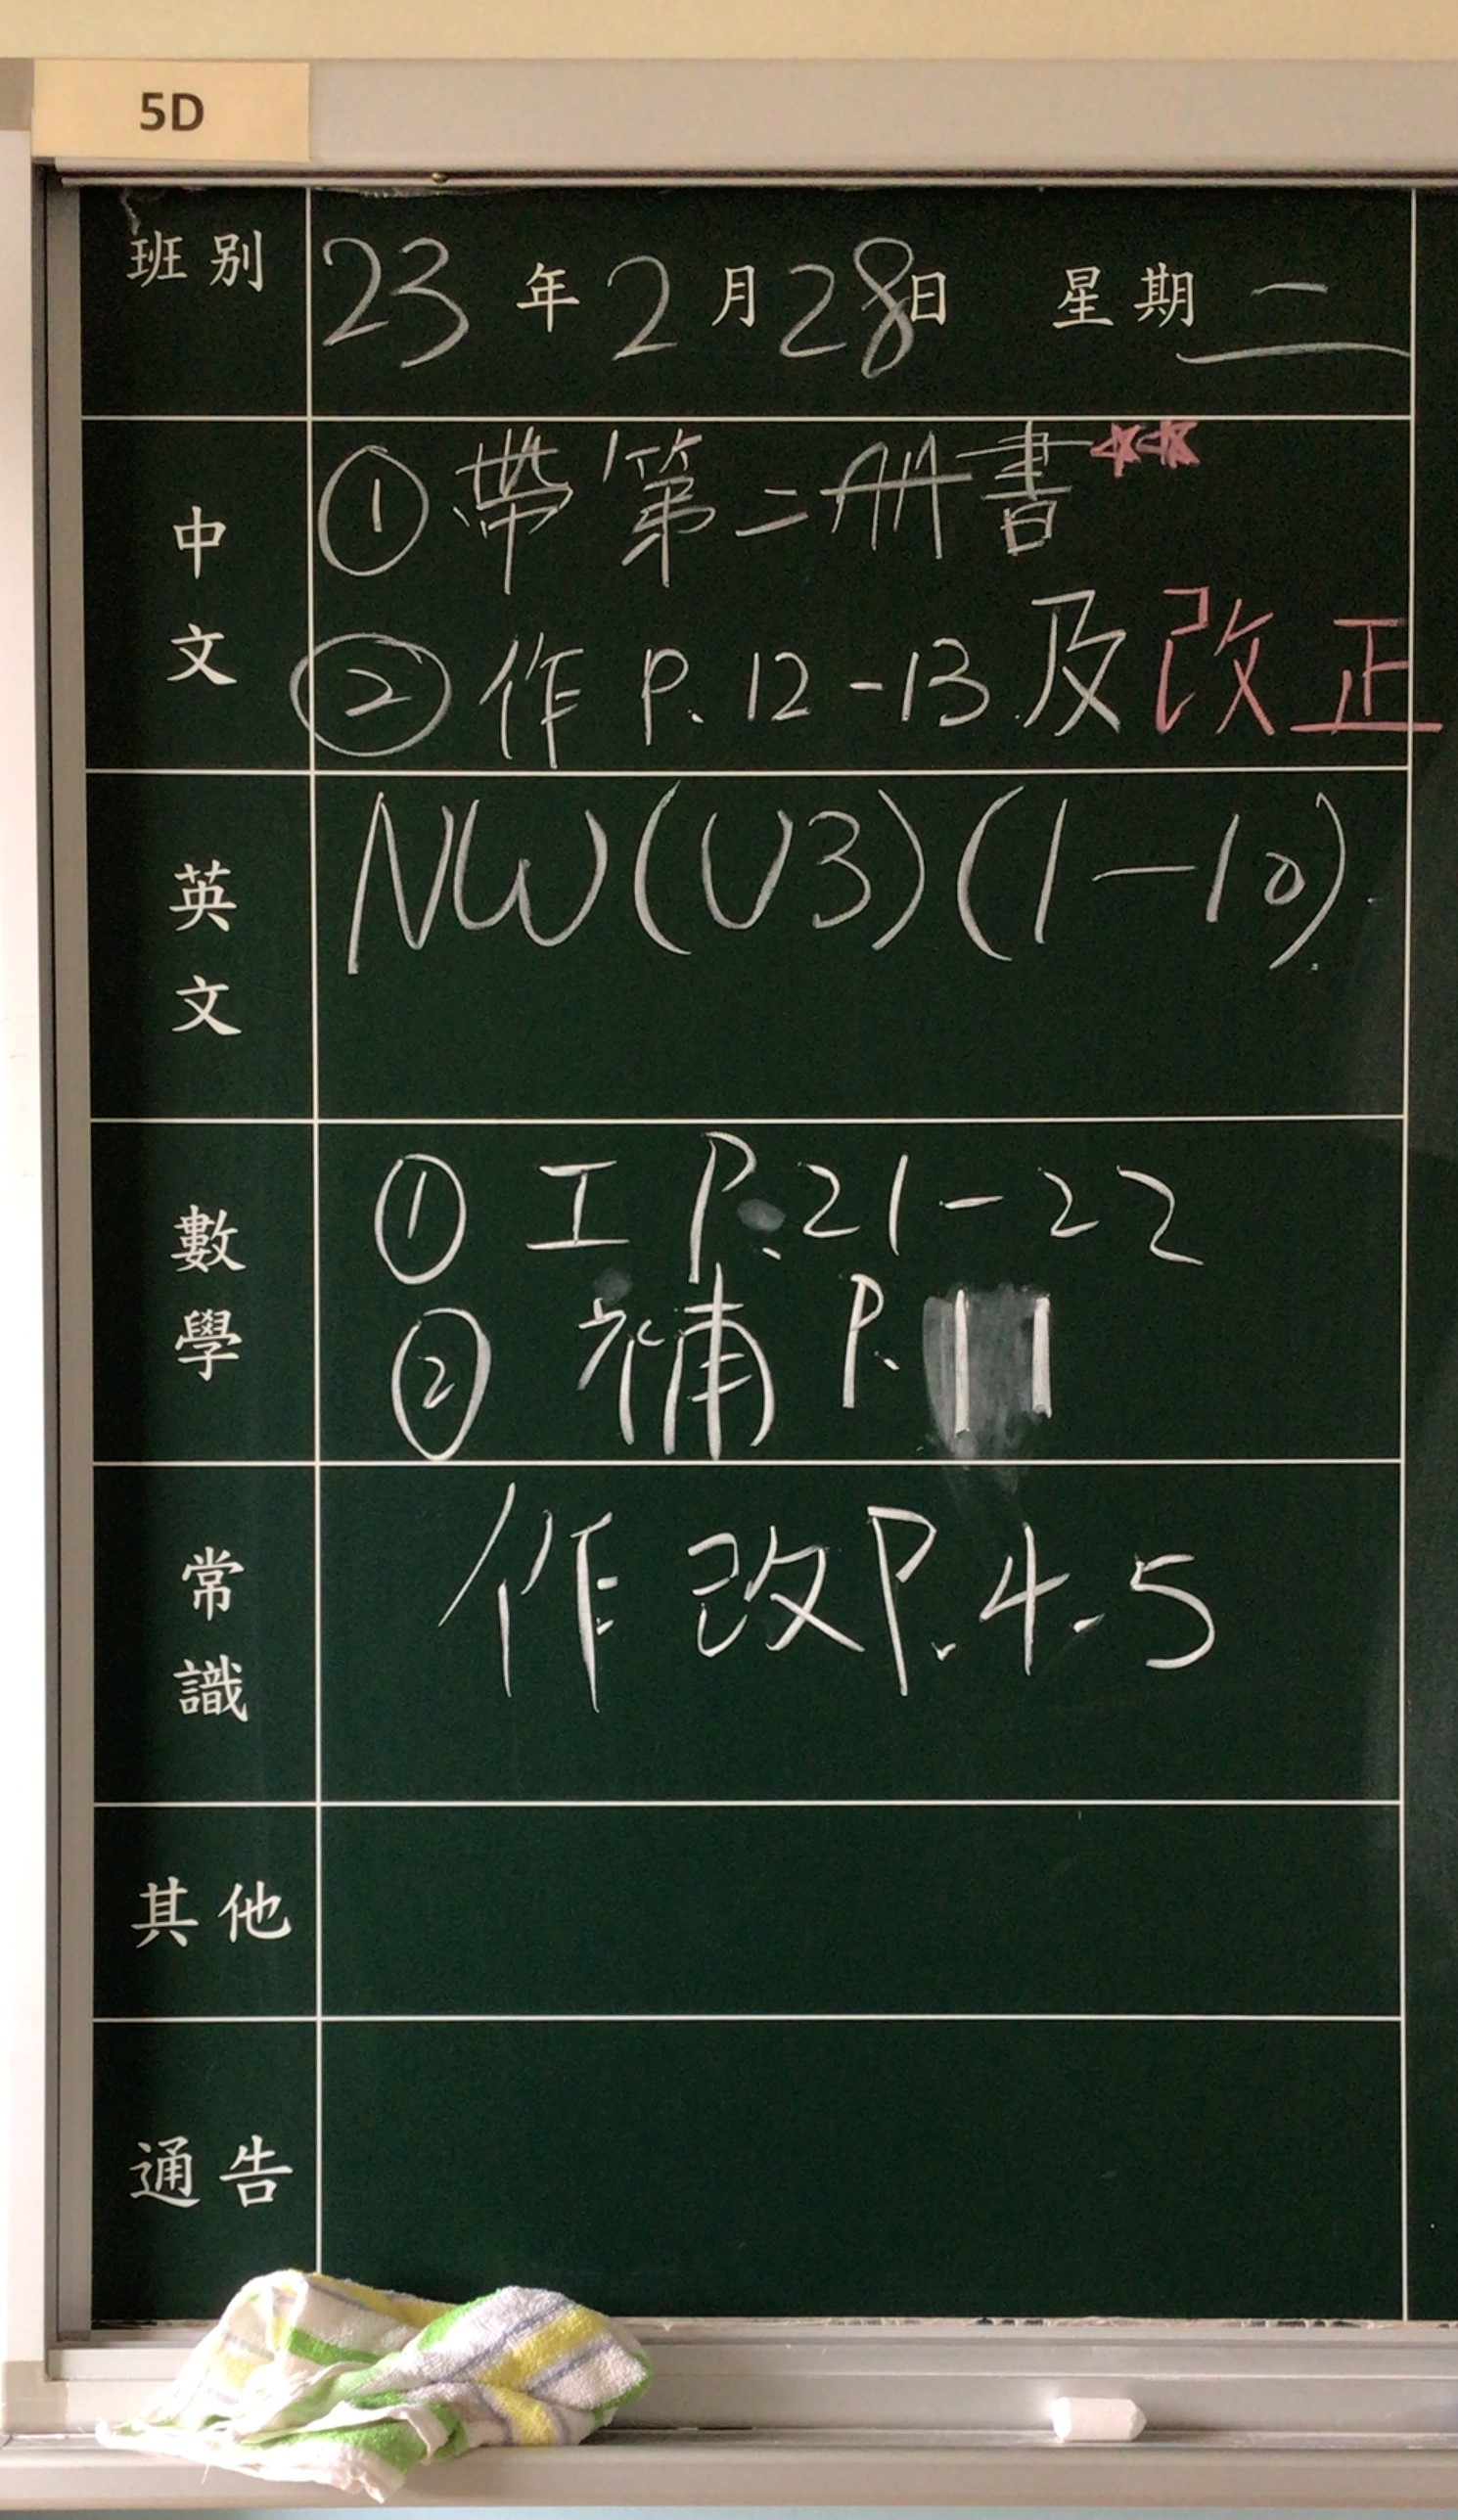 5D
班別 23年2月28日 星期二
中文
①帶第二册書**
②作 P.12-13 及改正
英文
NW(U3)(1-10)
數學
① 工 P.21-22
② 補 P.11
常識
作改P.4-5
其他
通告